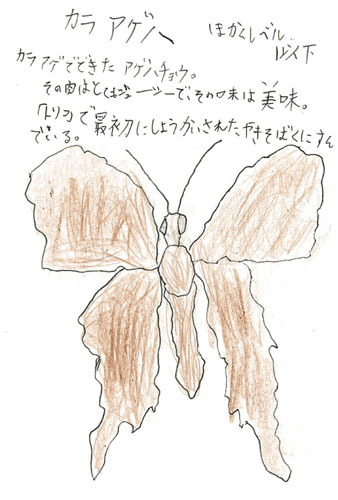 カラアゲハ
ほかくレベル
1以下
カラアゲでできたアゲハチョウ。
その肉はとてもジューシーで、その味は美味。
「トリコ」で最初にしょうかいされたやきそばくにすん
でいる。